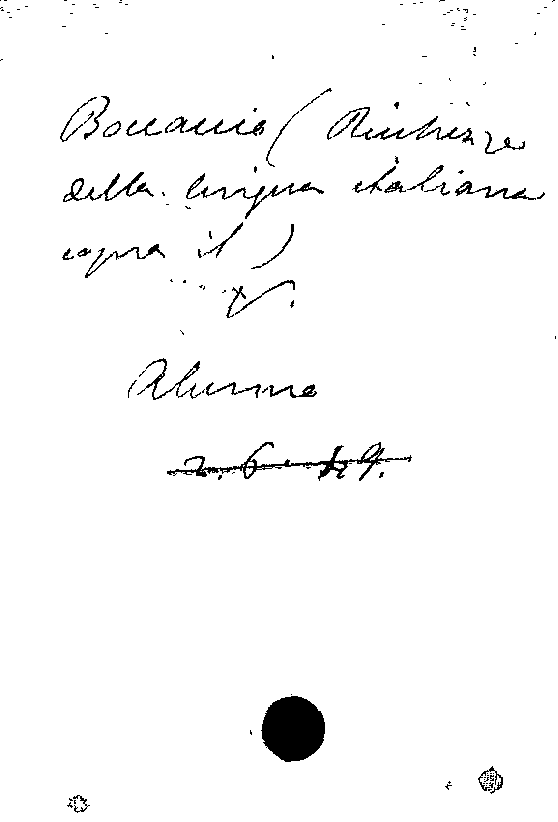 Boccaccio (Richezze
della lingua italiana
sopra il)
V.
Alunno
2. 6. 49.